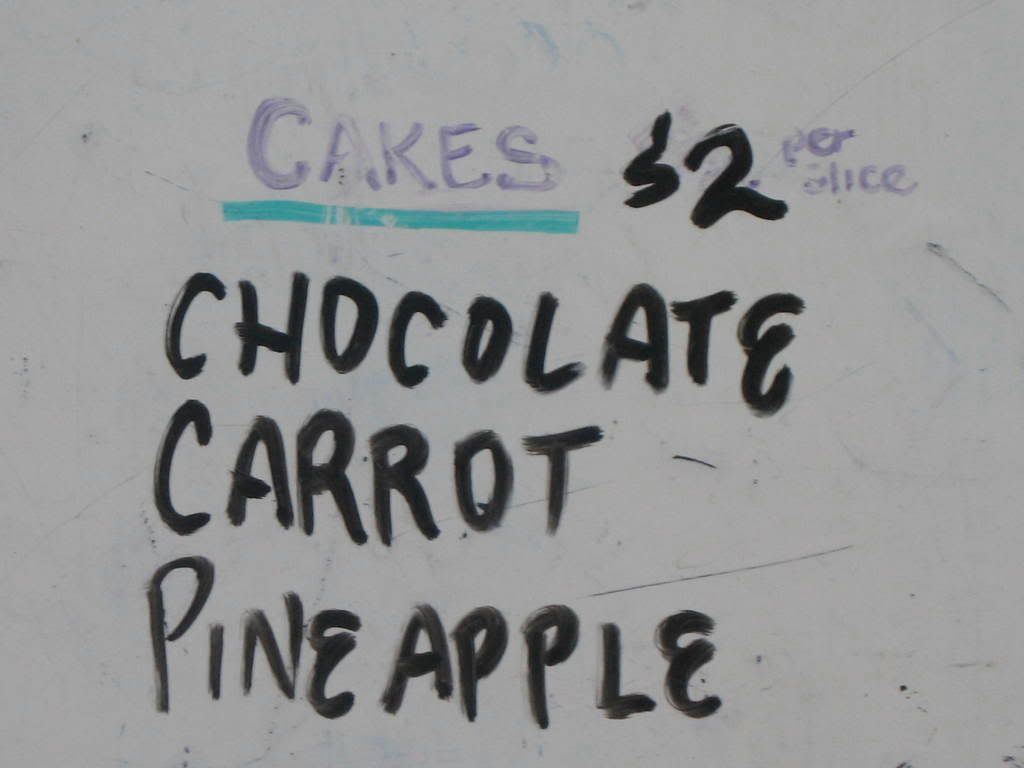 CAKES $2 per slice
CHOCOLATE
CARROT
PINEAPPLE